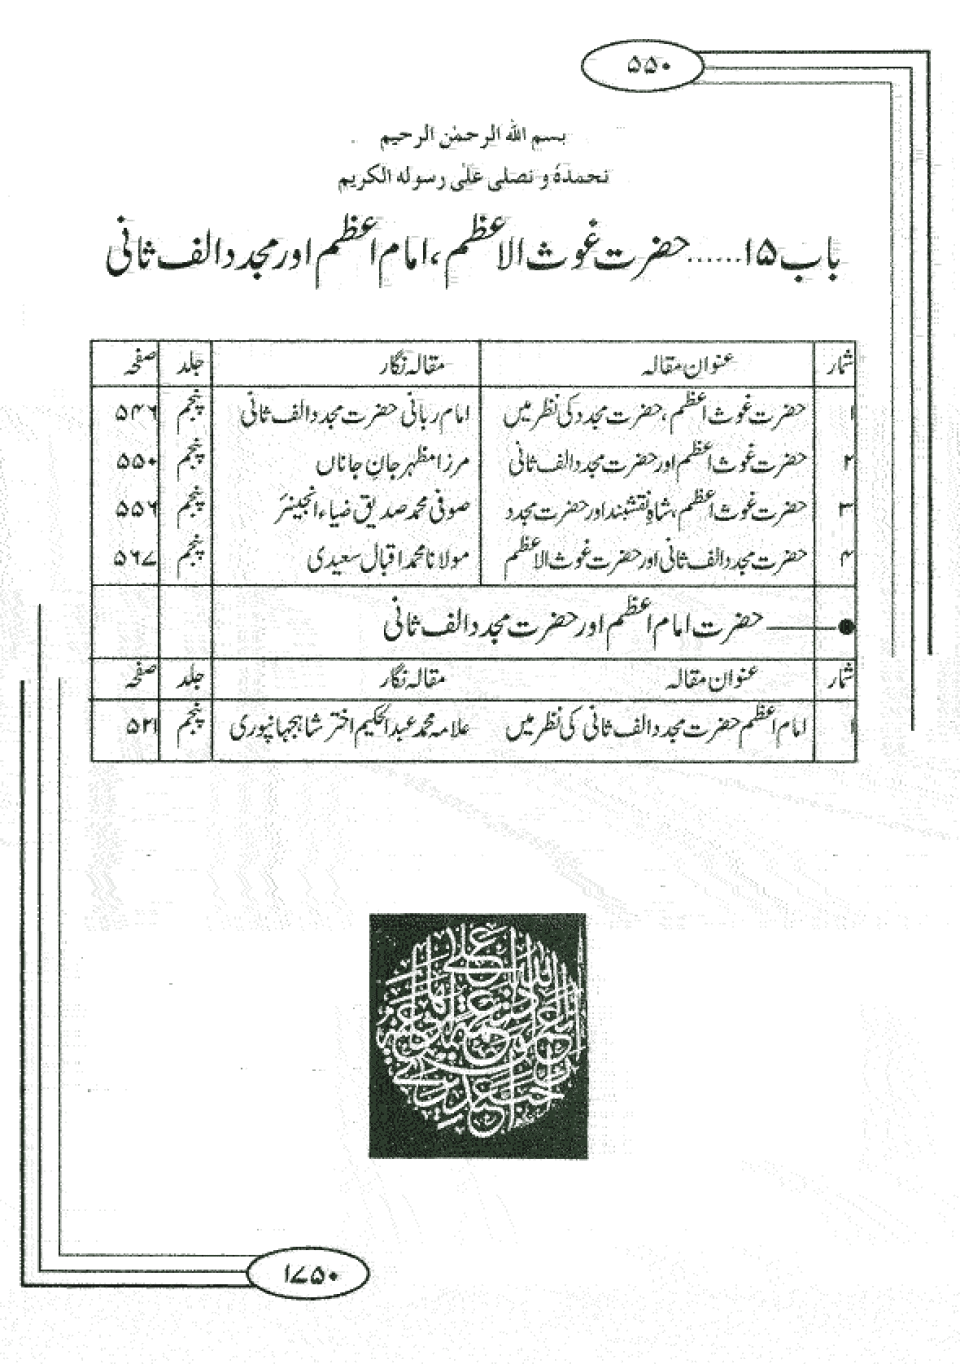 ۵۵۰
بسم اللہ الرحمٰن الرحیم
نحمدہٗ و نصلی علیٰ رسولہ الکریم
باب ۱۵......حضرت غوث الاعظم، امام اعظم اور مجدد الف ثانی
شمار عنوان مقالہ مقالہ نگار جلد صفحہ
۱ حضرت غوث اعظم، حضرت مجدد کی نظر میں امام ربانی حضرت مجدد الف ثانی پنجم ۵۴۶
۲ حضرت غوث اعظم اور حضرت مجدد الف ثانی مرزا مظہر جانِ جاناں پنجم ۵۵۰
۳ حضرت غوث اعظم، شاہِ نقشبند اور حضرت مجدد صوفی محمد صدیق ضیاء انجینئر پنجم ۵۵۶
۴ حضرت مجدد الف ثانی اور حضرت غوث الاعظم مولانا محمد اقبال سعیدی پنجم ۵۶۷
● حضرت امام اعظم اور حضرت مجدد الف ثانی
شمار عنوان مقالہ مقالہ نگار جلد صفحہ
۱ امام اعظم حضرت مجدد الف ثانی کی نظر میں علامہ محمد عبدالحکیم اختر شاہجہانپوری پنجم ۵۲۱
۱۷۵۰